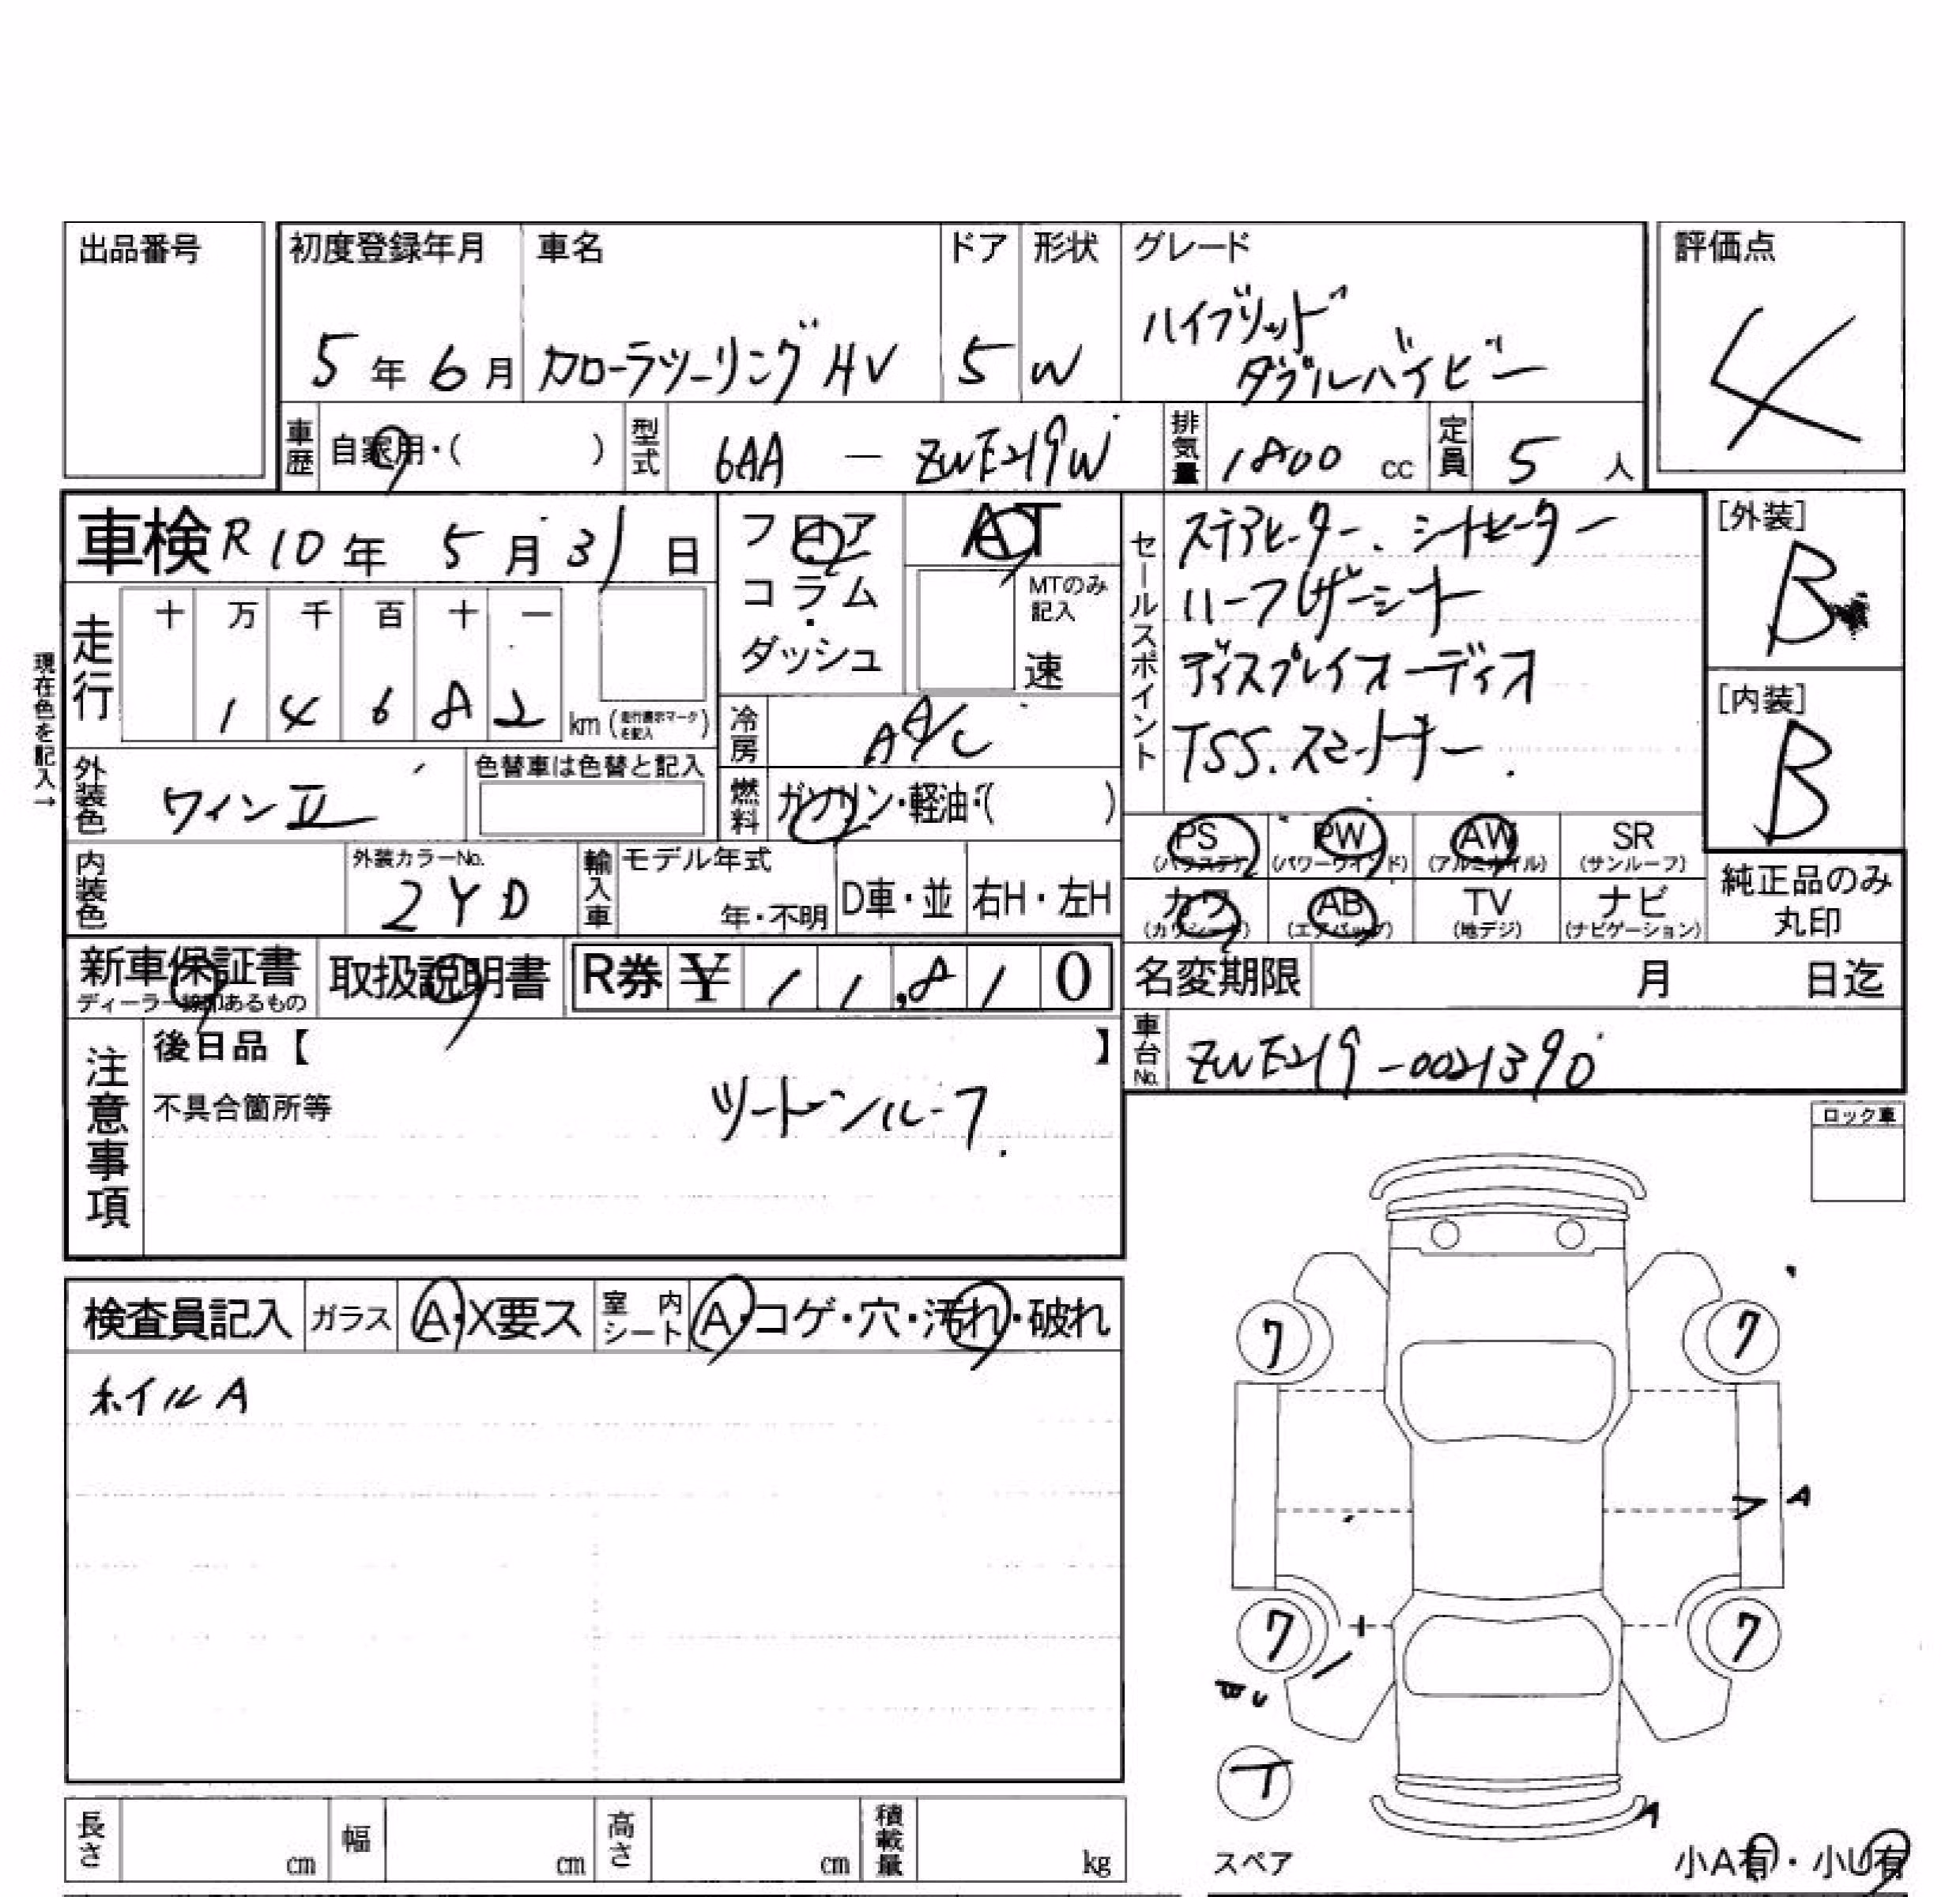 出品番号
初度登録年月 車名 ドア 形状 グレード 評価点
5年6月 カローラツーリングHV 5 W ハイブリッド
ダブルバイビー
4
車歴 自家用・( ) 型式 6AA - ZWE219W 排気量 1800cc 定員 5人
車検 R10年5月31日
フロア
コラム
・
ダッシュ
AT
MTのみ
記入
速
セールスポイント
ステアヒーター、シートヒーター
ハーフレザーシート
ディスプレイオーディオ
TSS.スマートキー.
[外装]
B
[内装]
B
現在色を記入→
走行 十 万 千 百 十 一
1 4 6 8 2 km (走行表示マークを記入)
冷房 AA/C
外装色 ワインII 色替車は色替と記入
燃料 ガソリン・軽油・( )
PS PW AW SR
(パワステ) (パワーウインド) (アルミホイル) (サンルーフ)
カワ AB TV ナビ
(カワシート) (エアバッグ) (地デジ) (ナビゲーション)
純正品のみ
丸印
内装色 外装カラーNo. 2YD 輸入車 モデル年式 年・不明 D車・並 右H・左H
新車保証書 取扱説明書 R券 ¥ 11,810
名変期限 月 日迄
車台No. ZWE219-0021390
注意事項
後日品【 】
不具合箇所等
ツートンルーフ.
ロック車
検査員記入 ガラス A・X要ス 室内シート A・コゲ・穴・汚れ・破れ
ホイルA
7 7
A
7 7
U
T
スペア
A
小A有・小U有
長さ cm 幅 cm 高さ cm 積載量 kg